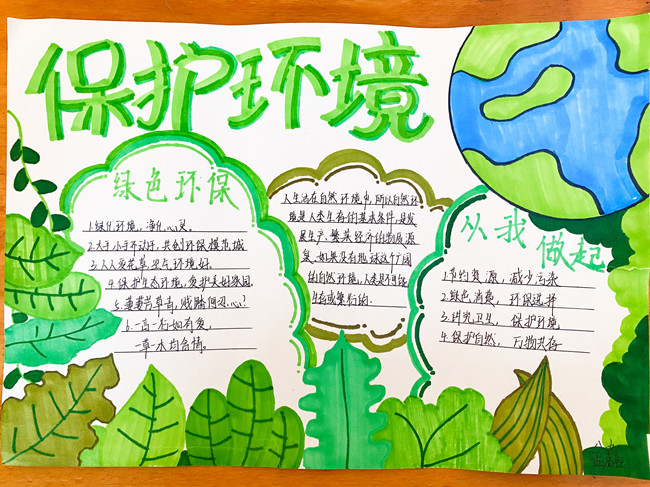 保护环境
绿色环保
1.绿化环境,净化心灵。
2.大手小手不动手,共创环保模范城
3.人人爱花草 环境好。
4.保护生态环境,爱护美好家园
5.萋萋芳草青,践踏何忍心?
6.一言一行如有爱,
一草一木均含情。
人生活在自然环境中,所以自然环
境是人类生存的基本条件,是发
展生产、繁荣经济的物质源
泉,如果没有地球这个广阔
的自然环境,人类是不可能
生存或繁衍的。
从我做起
1.节约资源,减少污染
2.绿色消费,环保选择
3.讲究卫生,保护环境
4.保护自然,万物共存